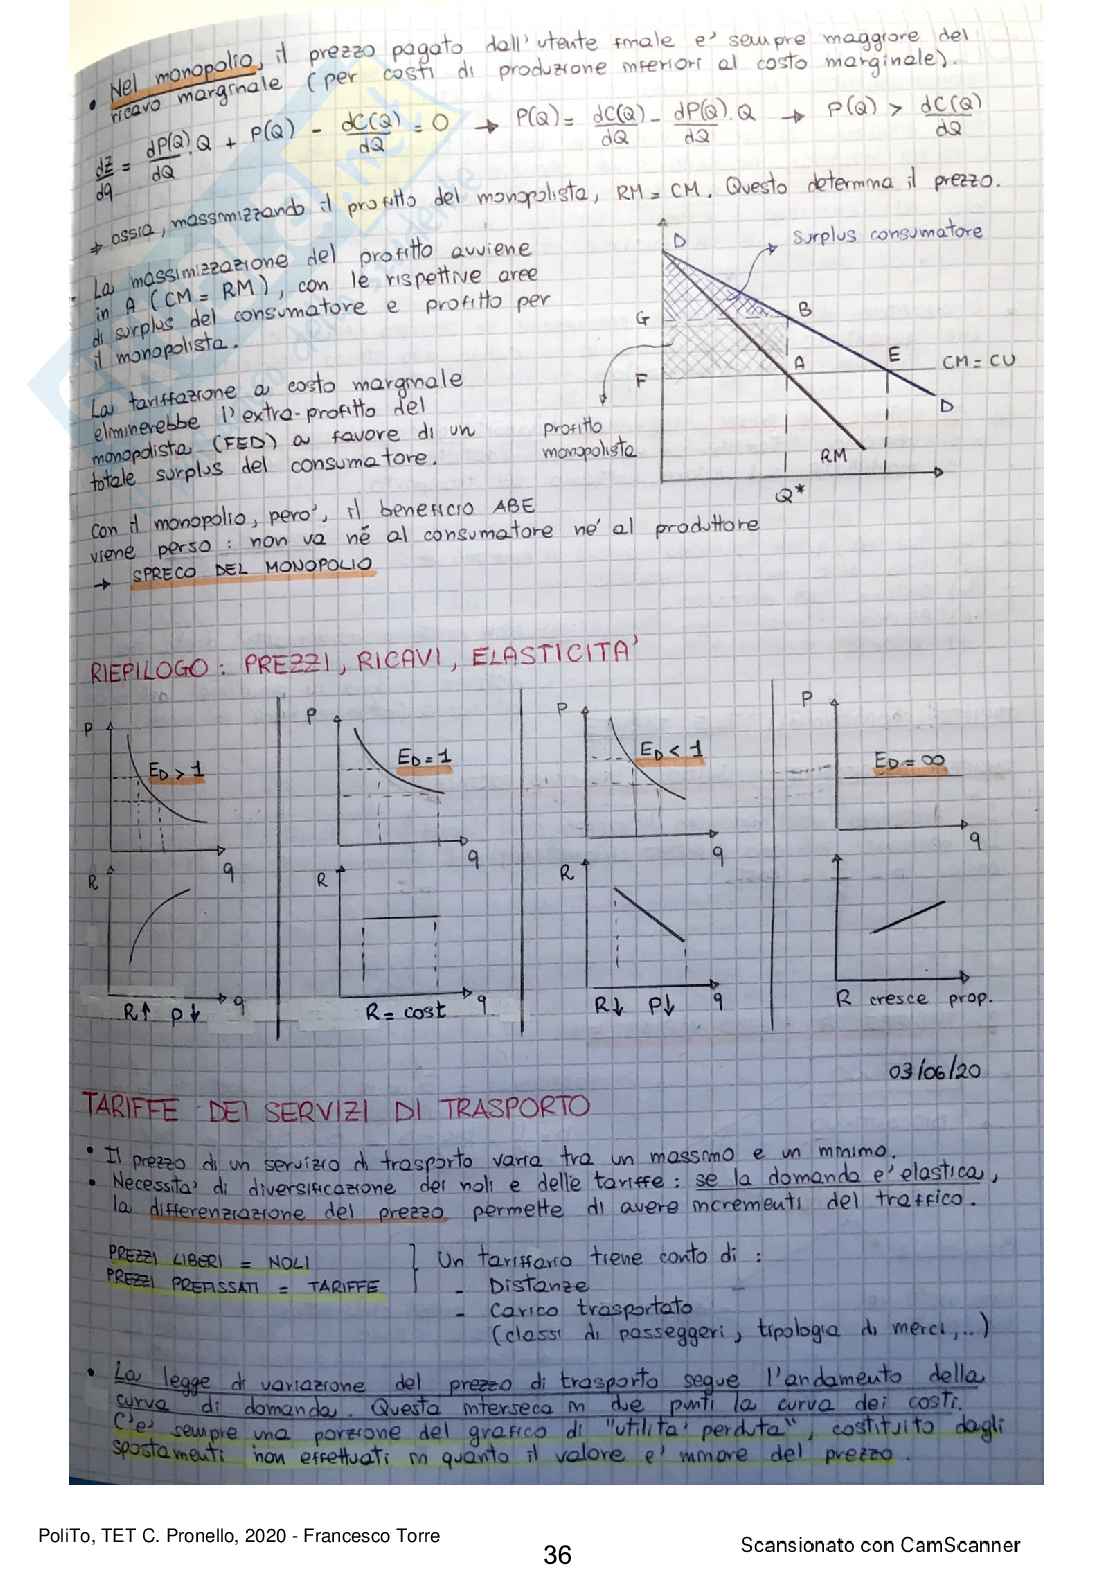 • Nel monopolio, il prezzo pagato dall'utente finale e' sempre maggiore del
ricavo marginale (per costi di produzione inferiori al costo marginale).
dz/dq = dP(Q)/dQ · Q + P(Q) - dC(Q)/dQ = 0 → P(Q) = dC(Q)/dQ - dP(Q)/dQ · Q → P(Q) > dC(Q)/dQ
→ ossia, massimizzando il profitto del monopolista, RM = CM. Questo determina il prezzo.
• La massimizzazione del profitto avviene
in A (CM = RM), con le rispettive aree
di surplus del consumatore e profitto per
il monopolista.
La tariffazione a costo marginale
eliminerebbe l'extra-profitto del
monopolista (FED) a favore di un
totale surplus del consumatore.
D
surplus consumatore
G
B
F
A
E
CM = CU
D
profitto
monopolista
RM
Q*
Con il monopolio, pero', il beneficio ABE
viene perso: non va né al consumatore ne' al produttore
→ SPRECO DEL MONOPOLIO
RIEPILOGO: PREZZI, RICAVI, ELASTICITA'
P
ED > 1
q
P
ED = 1
q
P
ED < 1
q
P
ED = ∞
q
R
q
R↑ P↓
R
q
R = cost
R
q
R↓ P↓
R cresce prop.
03/06/20
TARIFFE DEI SERVIZI DI TRASPORTO
• Il prezzo di un servizio di trasporto varia tra un massimo e un minimo.
• Necessita' di diversificazione dei noli e delle tariffe: se la domanda e' elastica,
la differenziazione del prezzo permette di avere incrementi del traffico.
PREZZI LIBERI = NOLI
PREZZI PREFISSATI = TARIFFE
Un tariffario tiene conto di:
- Distanze
- Carico trasportato
(classi di passeggeri, tipologia di merci,..)
• La legge di variazione del prezzo di trasporto segue l'andamento della
curva di domanda. Questa interseca in due punti la curva dei costi.
C'e' sempre una porzione del grafico di "utilita' perduta", costituito dagli
spostamenti non effettuati in quanto il valore e' minore del prezzo.
PoliTo, TET C. Pronello, 2020 - Francesco Torre
36
Scansionato con CamScanner